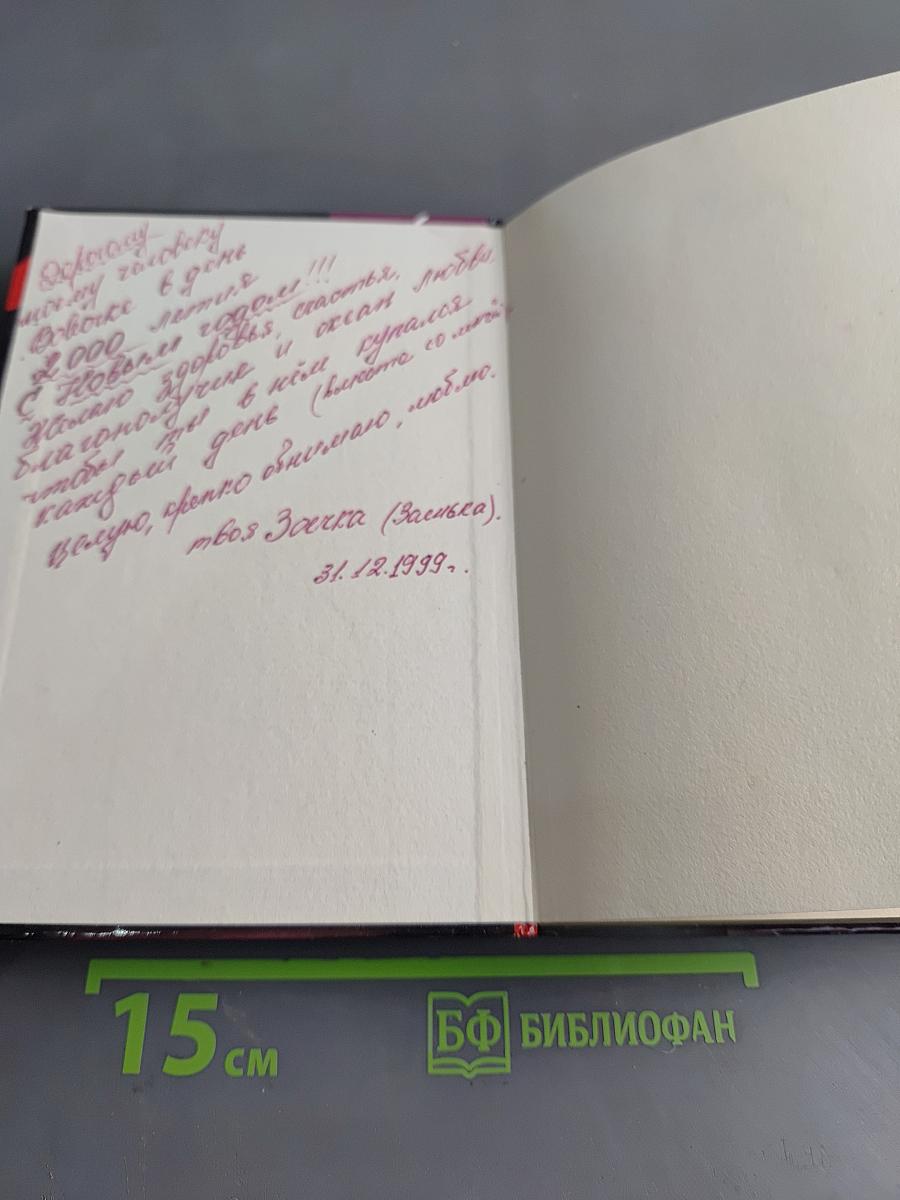 Дорогому
моему человеку
Вовочке в день
2000 летия
С Новым годом!!!
Желаю здоровья, счастья,
благополучия и океан любви,
чтобы ты в нём купался
каждый день (вместе со мной).
Целую, крепко обнимаю, люблю.
твоя Зоечка (Заинька).
31.12.1999г.
15 см
БФ БИБЛИОФАН